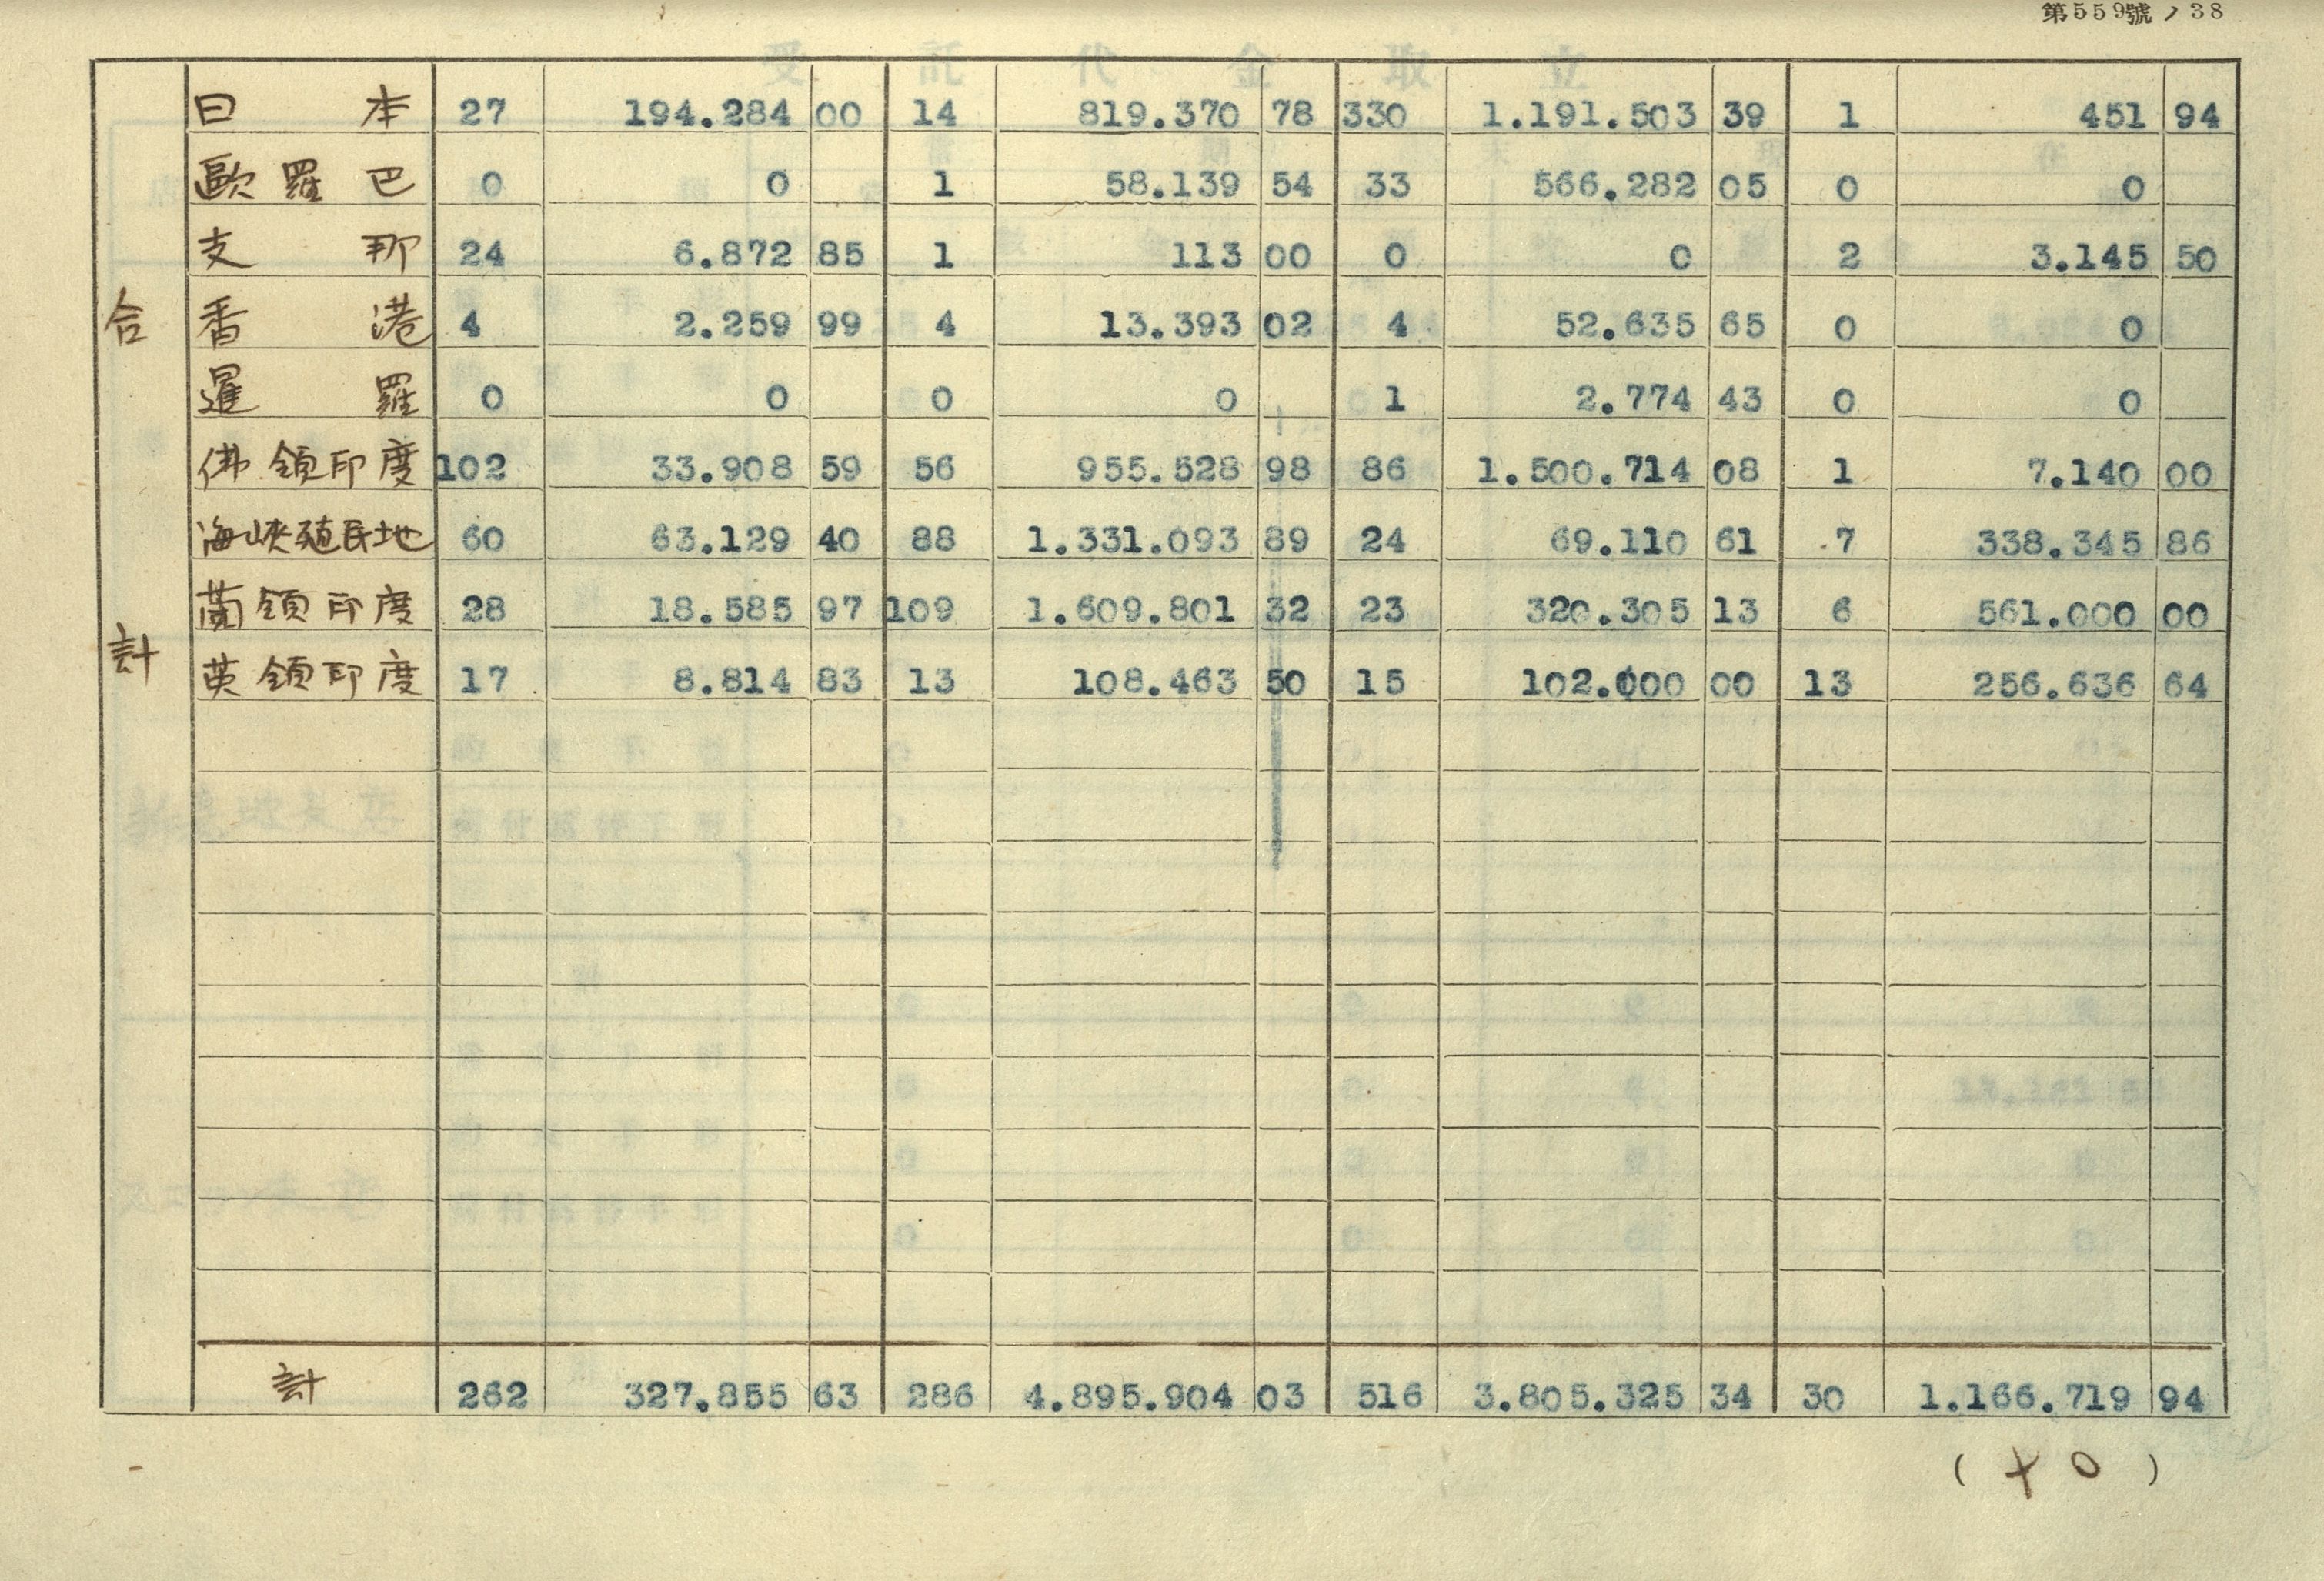 第559號ノ38
合計
日本 27 194.284 00 14 819.370 78 330 1.191.503 39 1 451 94
歐羅巴 0 0 1 58.139 54 33 566.282 05 0 0
支那 24 6.872 85 1 113 00 0 0 2 3.145 50
香港 4 2.259 99 4 13.393 02 4 52.635 65 0 0
暹羅 0 0 0 0 1 2.774 43 0 0
佛領印度 102 33.908 59 56 955.528 98 86 1.500.714 08 1 7.140 00
海峽殖民地 60 63.129 40 88 1.331.093 89 24 69.110 61 7 338.345 86
蘭領印度 28 18.585 97 109 1.609.801 32 23 320.305 13 6 561.000 00
英領印度 17 8.814 83 13 108.463 50 15 102.000 00 13 256.636 64
計 262 327.855 63 286 4.895.904 03 516 3.805.325 34 30 1.166.719 94
(十0)